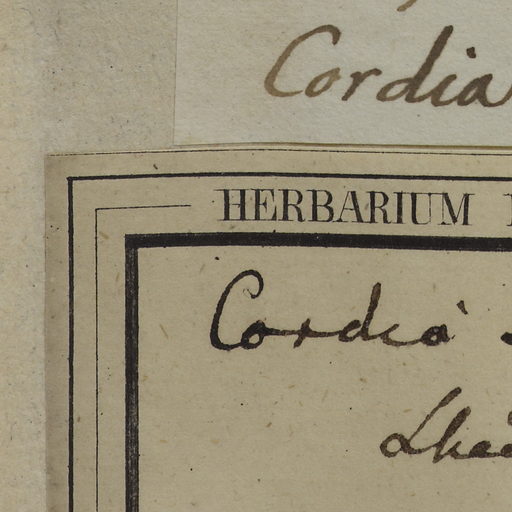 Cordia
HERBARIUM
Cordia